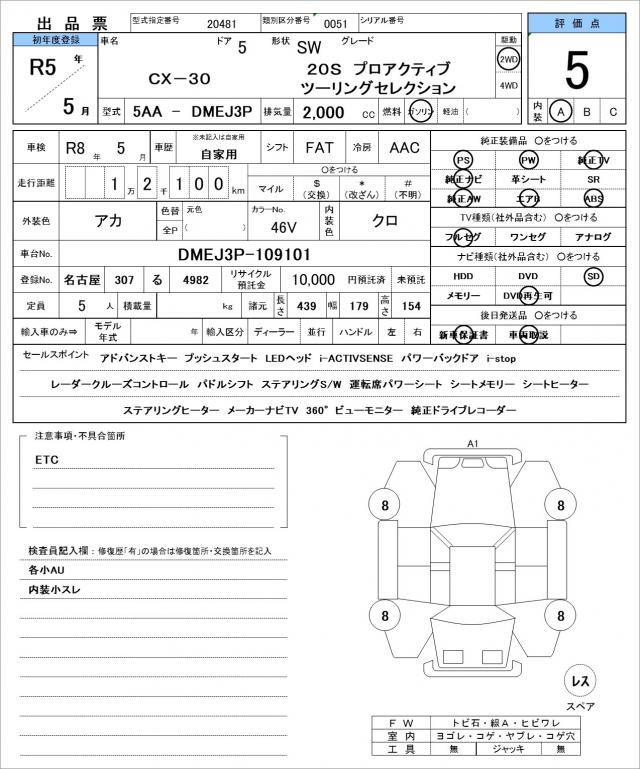 出品票 型式指定番号 20481 類別区分番号 0051 シリアル番号 評価点
初年度登録 車名 ドア 5 形状 SW グレード 駆動
R5 年 5 月 CX-30 20S プロアクティブ 2WD 5
ツーリングセレクション 4WD
型式 5AA - DMEJ3P 排気量 2,000 cc 燃料 ガソリン 軽油 ( ) 内装 A B C
車検 R8 年 5 月 車歴 ※未記入は自家用 自家用 シフト FAT 冷房 AAC 純正装備品 〇をつける
PS PW 純正TV
走行距離 1 万 2 千 1 0 0 km 〇をつける
マイル $ (交換) * (改ざん) # (不明)
純正ナビ 革シート SR
純正AW エアB ABS
外装色 アカ 色替 元色 カラーNo. 内装色 クロ
全P ( ) 46V
TV種類(社外品含む) 〇をつける
フルセグ ワンセグ アナログ
車台No. DMEJ3P-109101 ナビ種類(社外品含む) 〇をつける
登録No. 名古屋 307 る 4982 リサイクル預託金 10,000 円預託済 未預託 HDD DVD SD
定員 5 人 積載量 kg 諸元 長さ 439 幅 179 高さ 154 メモリー DVD再生可
後日発送品 〇をつける
輸入車のみ⇒ モデル年式 年 輸入区分 ディーラー 並行 ハンドル 左 右 新車保証書 車両取説
セールスポイント アドバンストキー プッシュスタート LEDヘッド i-ACTIVSENSE パワーバックドア i-stop
レーダークルーズコントロール パドルシフト ステアリングS/W 運転席パワーシート シートメモリー シートヒーター
ステアリングヒーター メーカーナビTV 360°ビューモニター 純正ドライブレコーダー
注意事項・不具合箇所
ETC
検査員記入欄：修復歴「有」の場合は修復箇所・交換箇所を記入
各小AU
内装小スレ
A1
8 8
8 8
レス
スペア
FW トビ石・線A・ヒビワレ
室内 ヨゴレ・コゲ・ヤブレ・コゲ穴
工具 無 ジャッキ 無